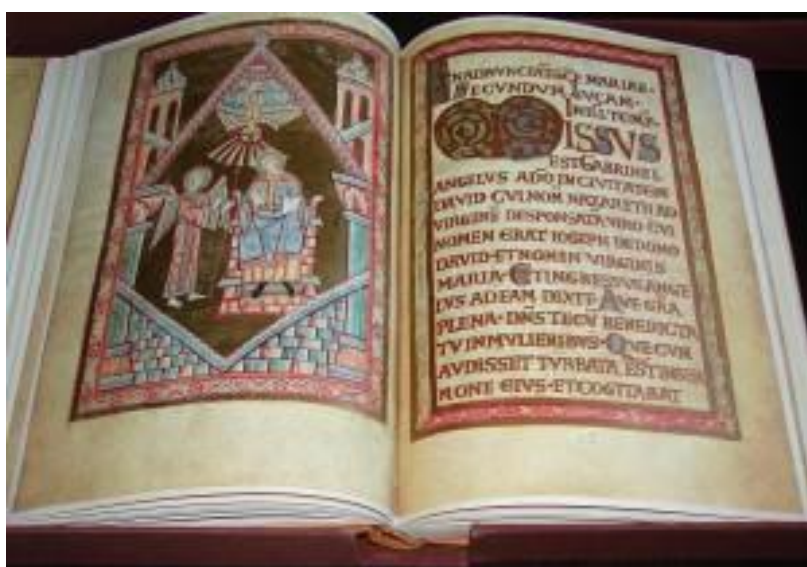 IN ADNVNCIATIOE MARIAE
SECVNDVM LVCAM
IN ILL TEMP
MISSVS
EST GABRIHEL
ANGELVS A DO IN CIVITATEM
DAVID CVI NOM NAZARETH AD
VIRGINE DESPONSATA VIRO CVI
NOMEN ERAT IOSEPH DE DOMO
DAVID · ET NOMEN VIRGINIS
MARIA · ET INGRESSVS ANGE
LVS AD EAM DIXIT · AVE GRA
PLENA · DNS TECV BENEDICTA
TV IN MVLIERIBVS · QVE CVM
AVDISSET TVRBATA EST IN SER
MONE EIVS · ET COGITABAT